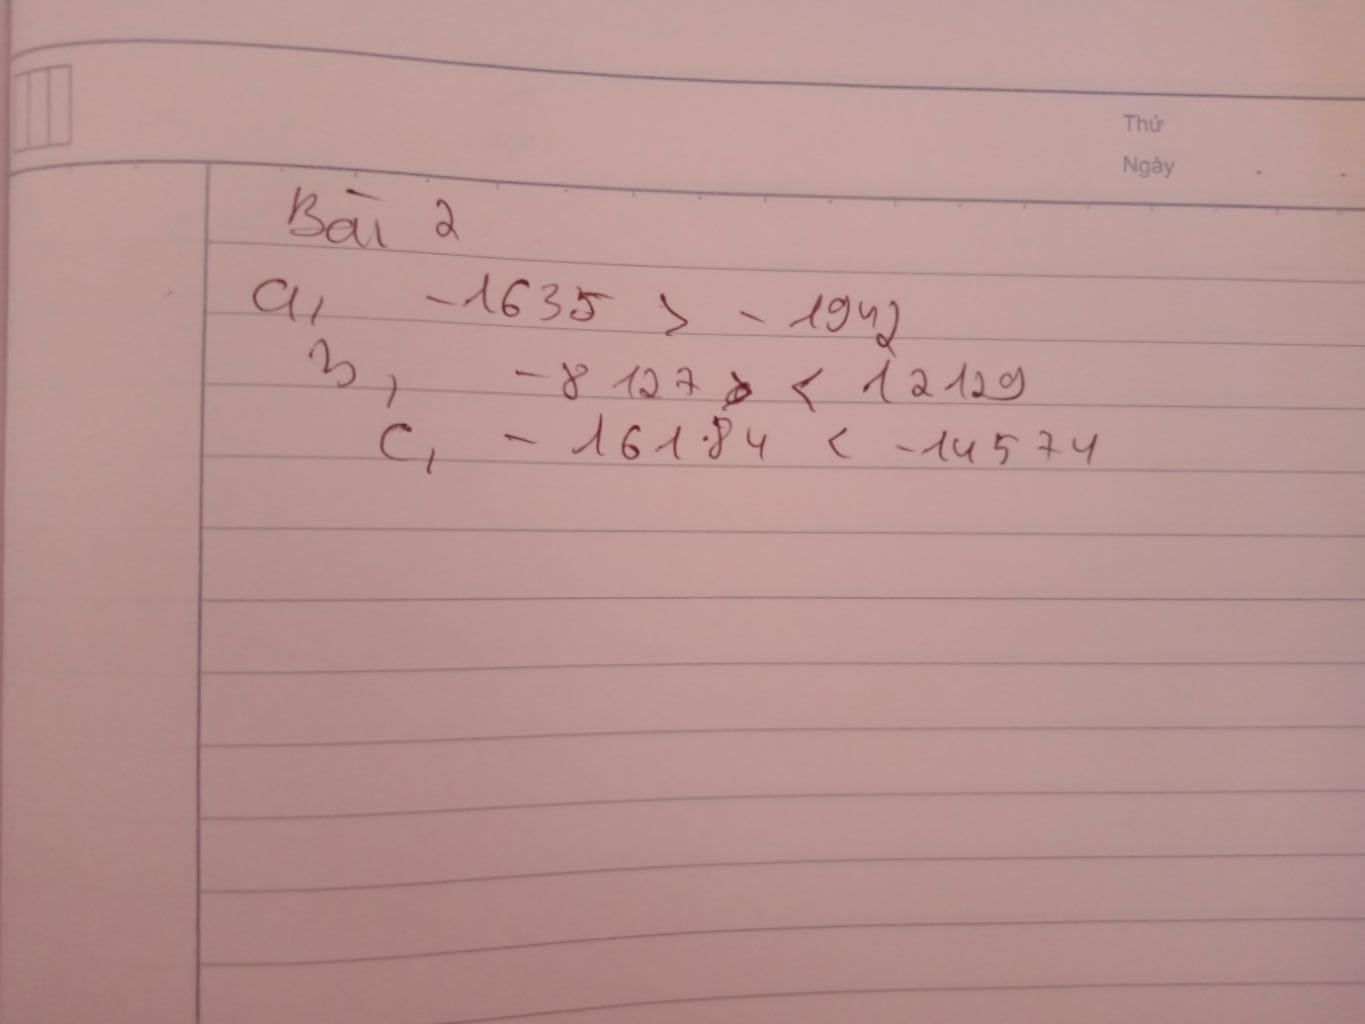 Thứ
Ngày
Bài 2
a, -1635 > - 1942
b, -8127 < 12129
c, - 16184 < -14574